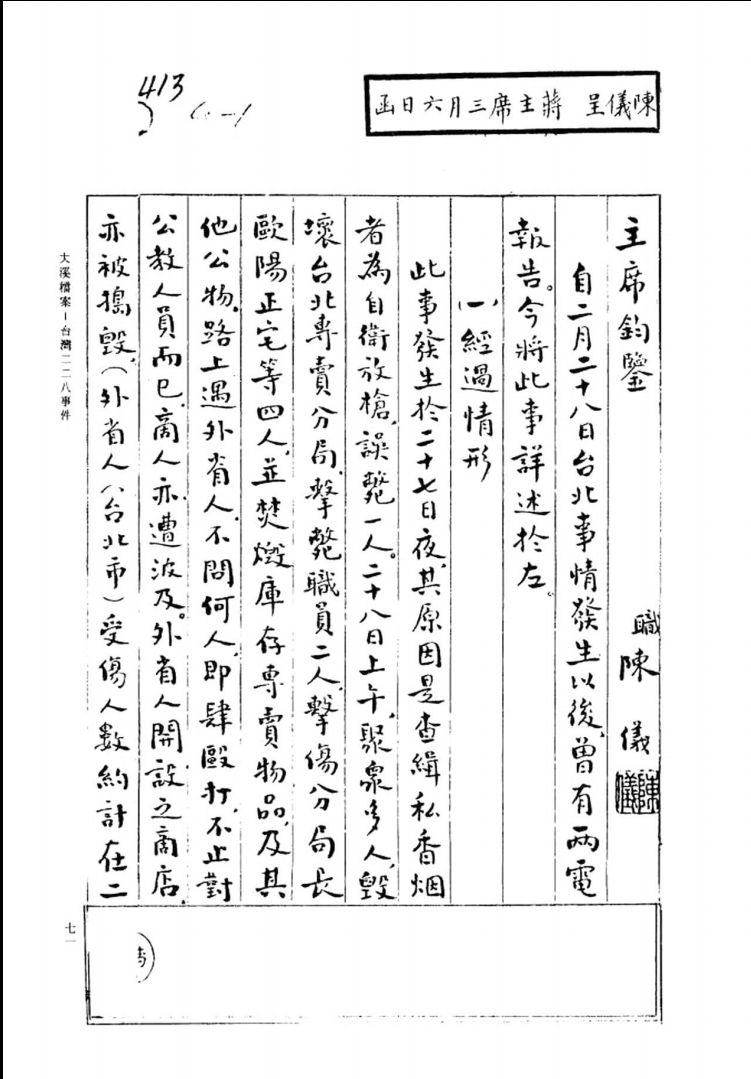 413
6-1
陳儀呈　蔣主席三月六日函
主席鈞鑒
職陳儀
陳儀
自二月二十八日台北事情發生以後，曾有兩電
報告。今將此事詳述於左。
(一)經過情形
此事發生於二十七日夜，其原因是查緝私香烟
者為自衛放槍，誤斃一人。二十八日上午，聚眾多人，毀
壞台北專賣分局，擊斃職員二人，擊傷分局長
歐陽正宅等四人，並焚燬庫存專賣物品，及其
他公物，路上遇外省人，不問何人，即肆毆打，不止對
公教人員而已，商人亦遭波及。外省人開設之商店，
亦被搗毀，(外省人(台北市)受傷人數約計在二
大溪檔案－台灣二二八事件
七一